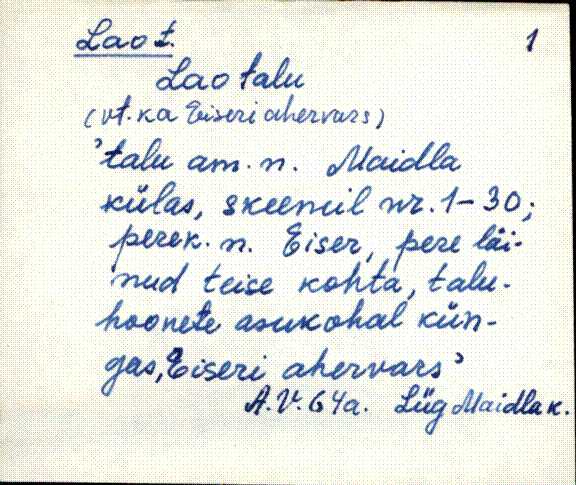 Lao t. 1
Lao talu
(vt. ka Eiseri ahervars)
'talu am. n. Maidla
külas, skeemil nr. 1-30;
perek. n. Eiser, pere läi-
nud teise kohta, talu-
hoonete asukohal kün-
gas, Eiseri ahervars'
A.V. 64a. Lüg Maidla k.